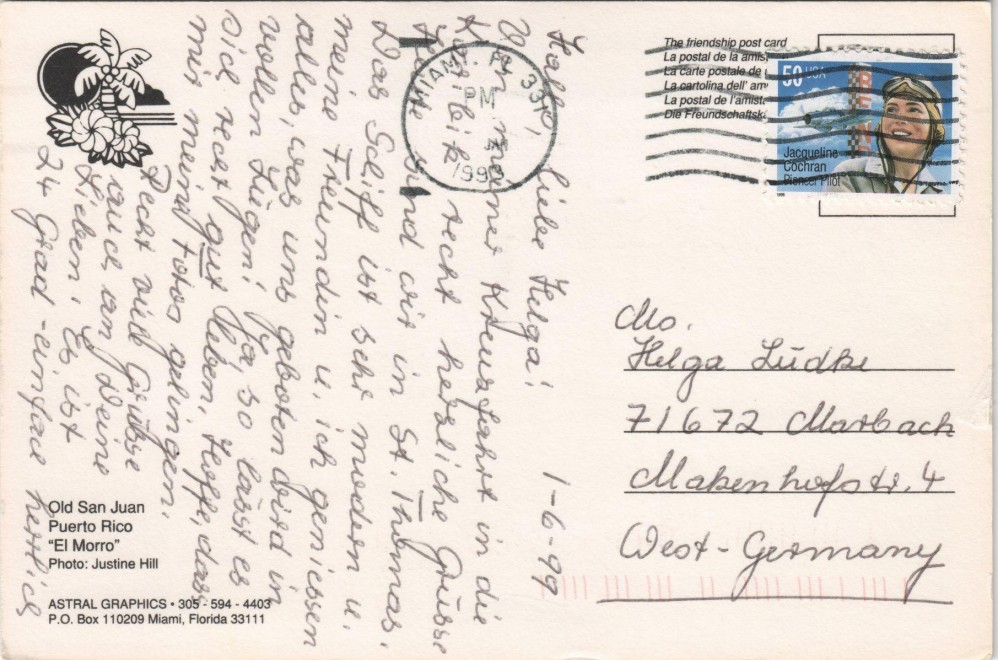 Hallo, liebe Helga! 1-6-99
Von meiner Kreuzfahrt in die
Karibik recht herzliche Grüsse
Heute sind wir in St. Thomas.
Das Schiff ist sehr modern u.
meine Freundin u. ich geniessen
alles, was uns geboten wird in
vollen Zügen! Ja so lässt es
sich recht gut leben. Hoffe, dass
mir meine Fotos gelingen.
Recht viele Grüsse
auch an Deine
Lieben. Es ist
24 Grad - einfach herrlich
Old San Juan
Puerto Rico
"El Morro"
Photo: Justine Hill
ASTRAL GRAPHICS • 305 - 594 - 4403
P.O. Box 110209 Miami, Florida 33111
MIAMI, FL 331
PM
1999
The friendship post card
La postal de la amis
La carte postale de
La cartolina dell' am
La postal de l'amist
Die Freundschaftsk
50 USA
Jacqueline
Cochran
Pioneer Pilot
Ms.
Helga Lüdke
71672 Marbach
Makenhofstr. 4
West-Germany